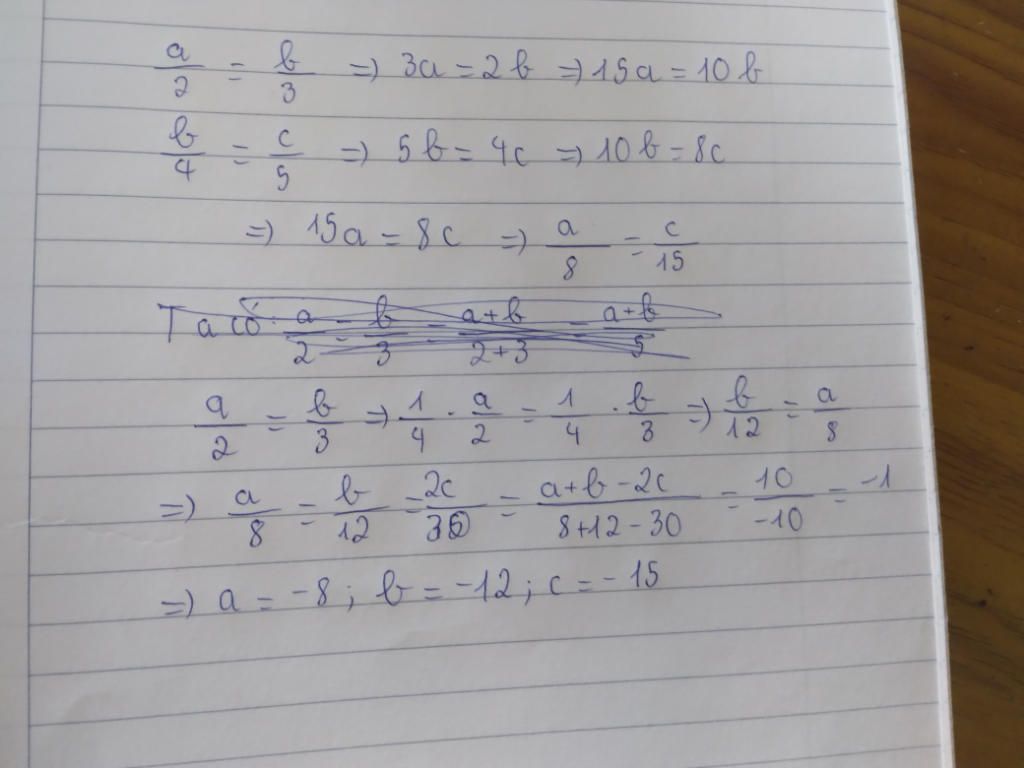 a/2 = b/3 => 3a = 2b => 15a = 10b
b/4 = c/5 => 5b = 4c => 10b = 8c
=> 15a = 8c => a/8 = c/15
Ta có: a/2 = b/3 = a+b/2+3 = a+b/5
a/2 = b/3 => 1/4 . a/2 = 1/4 . b/3 => b/12 = a/8
=> a/8 = b/12 = 2c/30 = a+b-2c/8+12-30 = 10/-10 = -1
=> a = -8; b = -12; c = -15